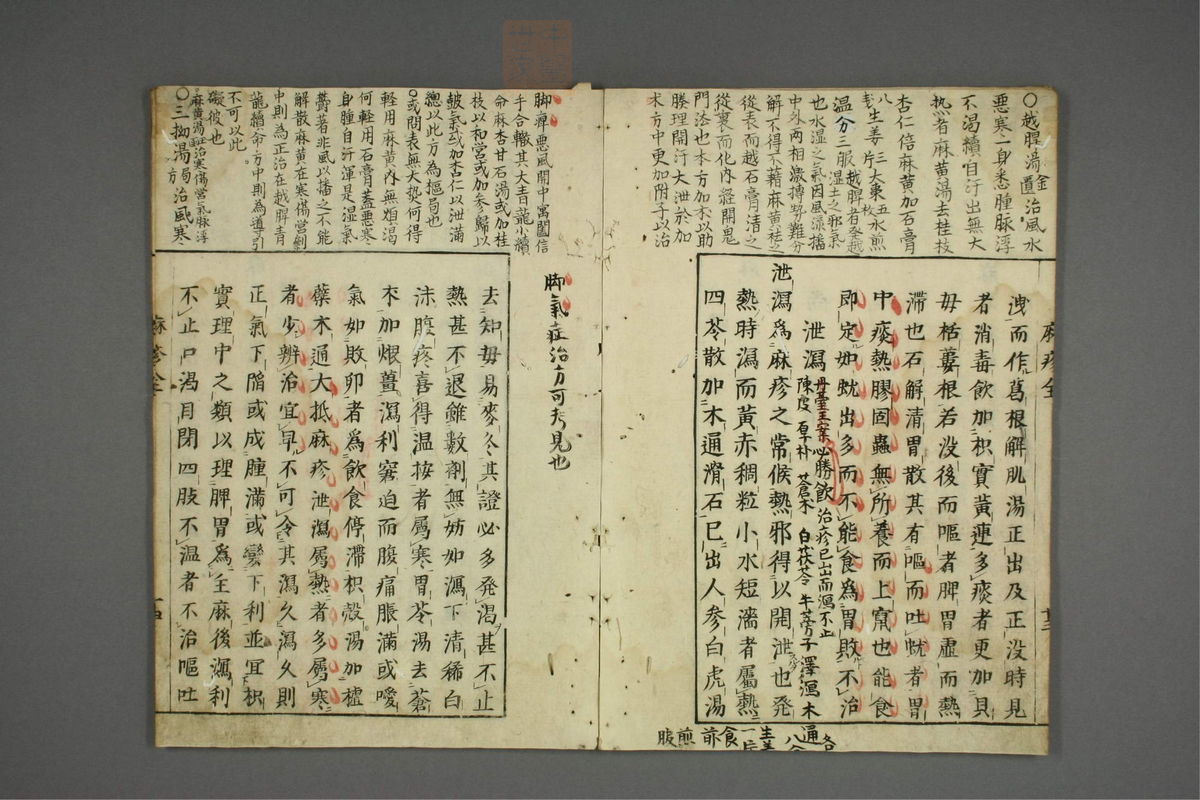 〇越脾湯 金匱 治風水
悪寒一身悉腫脉浮
不渇續自汗出無大
热者麻黄湯去桂枝
杏仁倍麻黄加石膏
八戔生姜三片大棗五枚水煎
温分三服 越脾者發越湿土之邪氣
也水湿之氣因風
中外両相激搏勢難分
解不得不藉麻黄
從表而越石膏清之
從裏而化内経開鬼
門法也本方加朮以助
腠理開汗大泄於加
朮方中更加附子以治
洩而作葛根解肌湯正出及正没時見
者消毒飲加枳實黄連多痰者更加貝
母栝蔞根若没後而嘔者脾胃虚而熱
滞也石解清胃散其有嘔而吐蚘者胃
中痰熱膠固蟲無所養而上竄也能食
即定如蚘出多而不能食爲胃敗不治
泄瀉 丹臺玉案 必勝飲 治疹已出而瀉不止
陳皮 厚朴 蒼朮 白茯苓 牛蒡子 澤瀉 木通 各八分
生姜一片食前煎服
泄瀉爲麻疹之常候熱邪得以開泄也発
熱時瀉而黄赤稠粒小水短濇者屬熱
四苓散加木通滑石已出人参白虎湯
麻疹全
脚氣症治方可考見也
脚痺悪風開中寓闔信
手合轍其大青龍小續
命麻杏甘石湯或加桂
枝以和営或加参歸以
皷氣或加杏仁以泄滿
總以此方為樞局也
〇或問表無大热何得
軽用麻黄内無煩渇
何軽用石膏蓋悪寒
身腫自汗渾是湿氣
欝著非風以播之不能
解散麻黄在寒傷営劑
中則為正治在越脾青
龍續命方中則為導引
不可以此
礙彼也
麻黄湯証治寒傷営氣脉浮
〇三拗湯 局方 治風寒
去知母易麥冬其證必多発渇甚不止
熱甚不退雖數劑無妨如瀉下清稀白
沫腹疼喜得温按者屬寒胃苓湯去蒼
朮加煨薑瀉利窘迫而腹痛脹滿或噯
氣如敗卵者爲飲食停滞枳殼湯加櫨
蘗木通大抵麻疹泄瀉屬熱者多屬寒
者少辨治宜早不可令其瀉久瀉久則
正氣下陥或成腫滿或變下利並宜枳
實理中之類以理脾胃爲主麻後瀉利
不止口渇目閉四肢不温者不治嘔吐
麻疹全